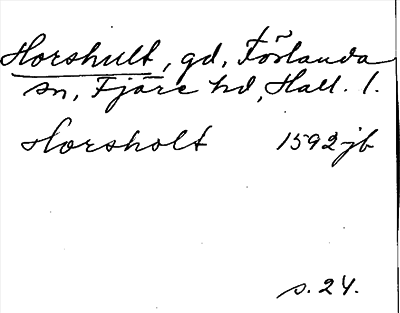 Horshult, gd, Förlanda
sn, Fjäre hd, Hall. l.
Horsholt 1592 jb
s. 24.